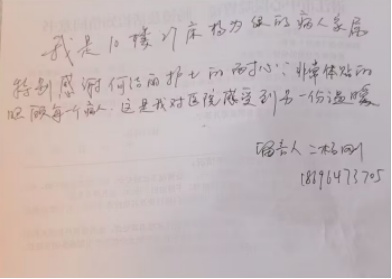 我是10楼21床杨为俊的病人家属
特别感谢何洁丽护士的耐心:非常体贴的
照顾每个病人:这是我对医院感受到另一份温暖
留言人:杨刚
18196473705